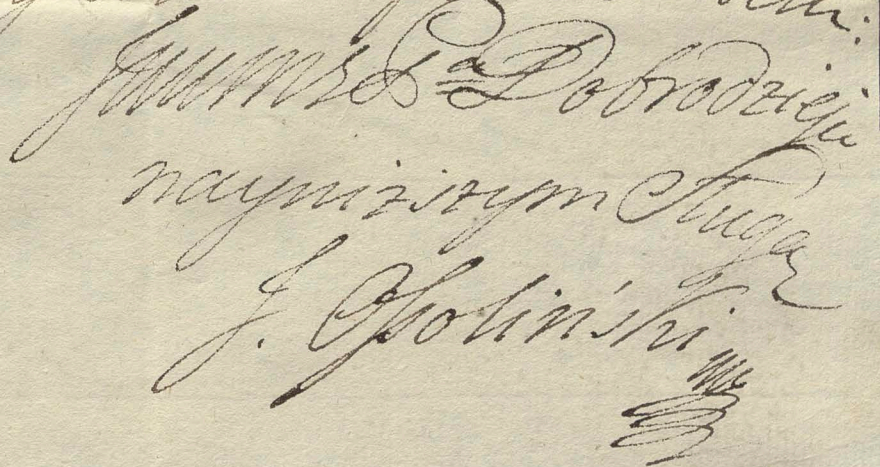 Pa Dobrodzieja
nayniższym Sługą
J. Ossoliński